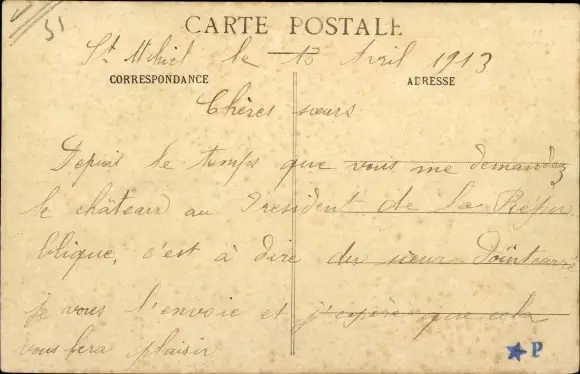 51
CARTE POSTALE
St Mihiel le 13 Avril 1913
CORRESPONDANCE
ADRESSE
Chères sœurs
Depuis le temps que vous me demandez
le château au President de la Répu
blique, c'est à dire du sieur
je vous l'envoie et j'espère que cela
vous fera plaisir
★P